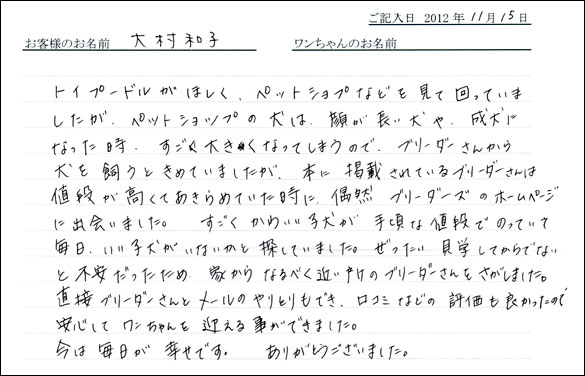 ご記入日 2012年11月15日
お客様のお名前 大村和子 ワンちゃんのお名前
トイプードルがほしく、ペットショプなどを見て回っていま
したが、ペットショップの犬は、顔が長い犬や、成犬に
なった時、すごく大きくなってしまうので、ブリーダーさんから
犬を飼うときめていましたが、本に掲載されているブリーダーさんは
値段が高くてあきらめていた時に、偶然 ブリーダーズのホームページ
に出会いました。 すごくかわいい子犬が 手頃な値段でのっていて
毎日、いい子犬がいないかと探していました。ぜったい 見学してからでない
と不安だったため、家からなるべく近い所のブリーダーさんをさがしました。
直接ブリーダーさんとメールのやりとりもでき、口コミなどの評価も良かったので
安心して ワンちゃんを 迎える事ができました。
今は毎日が 幸せです。 ありがとうございました。